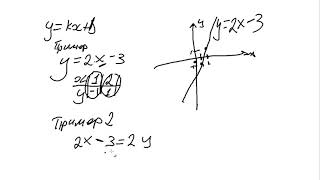 y=kx+b
Пример
y=2x-3
x 1 2
y -1 1
Пример 2
2x-3=2y
y
y=2x-3
x